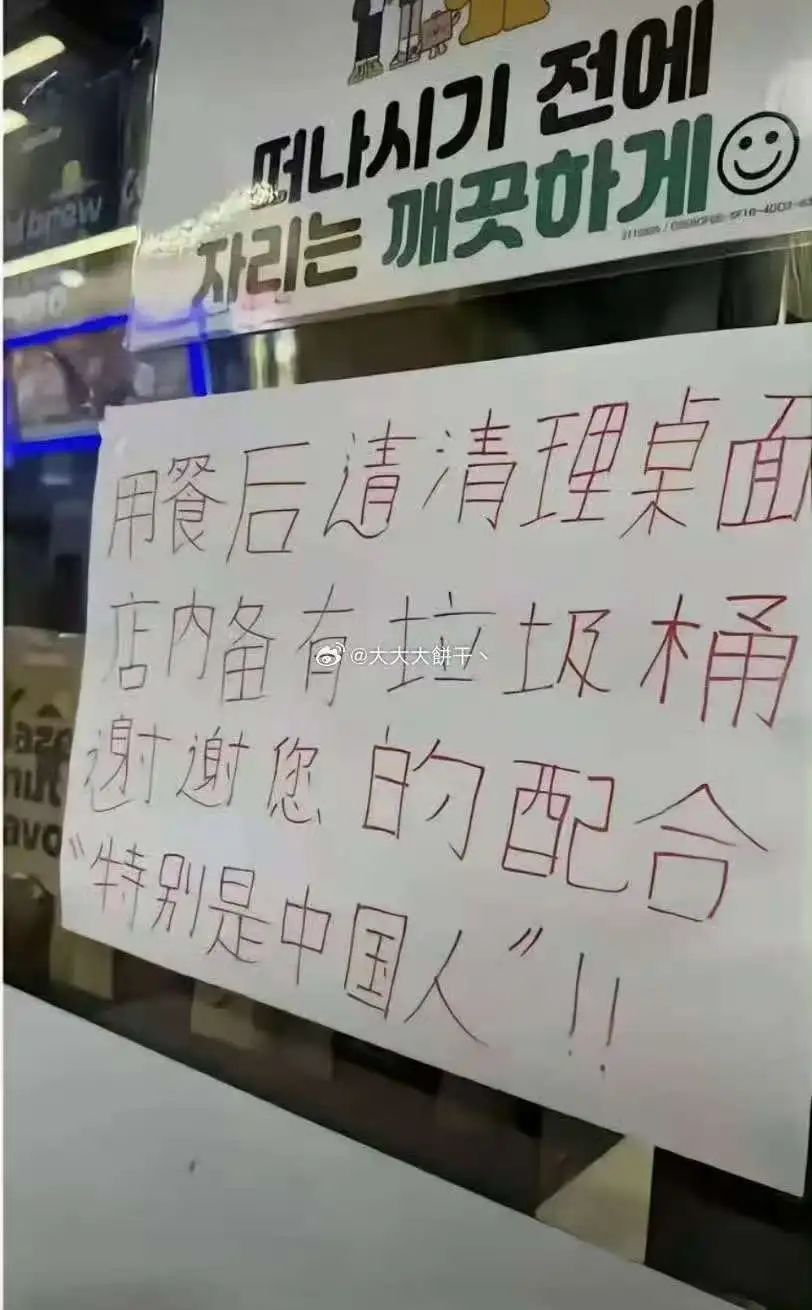 떠나시기 전에
자리는 깨끗하게
brew
用餐后请清理桌面
店内备有垃圾桶
@大大大餅干丶
谢谢您的配合
“特别是中国人”!!